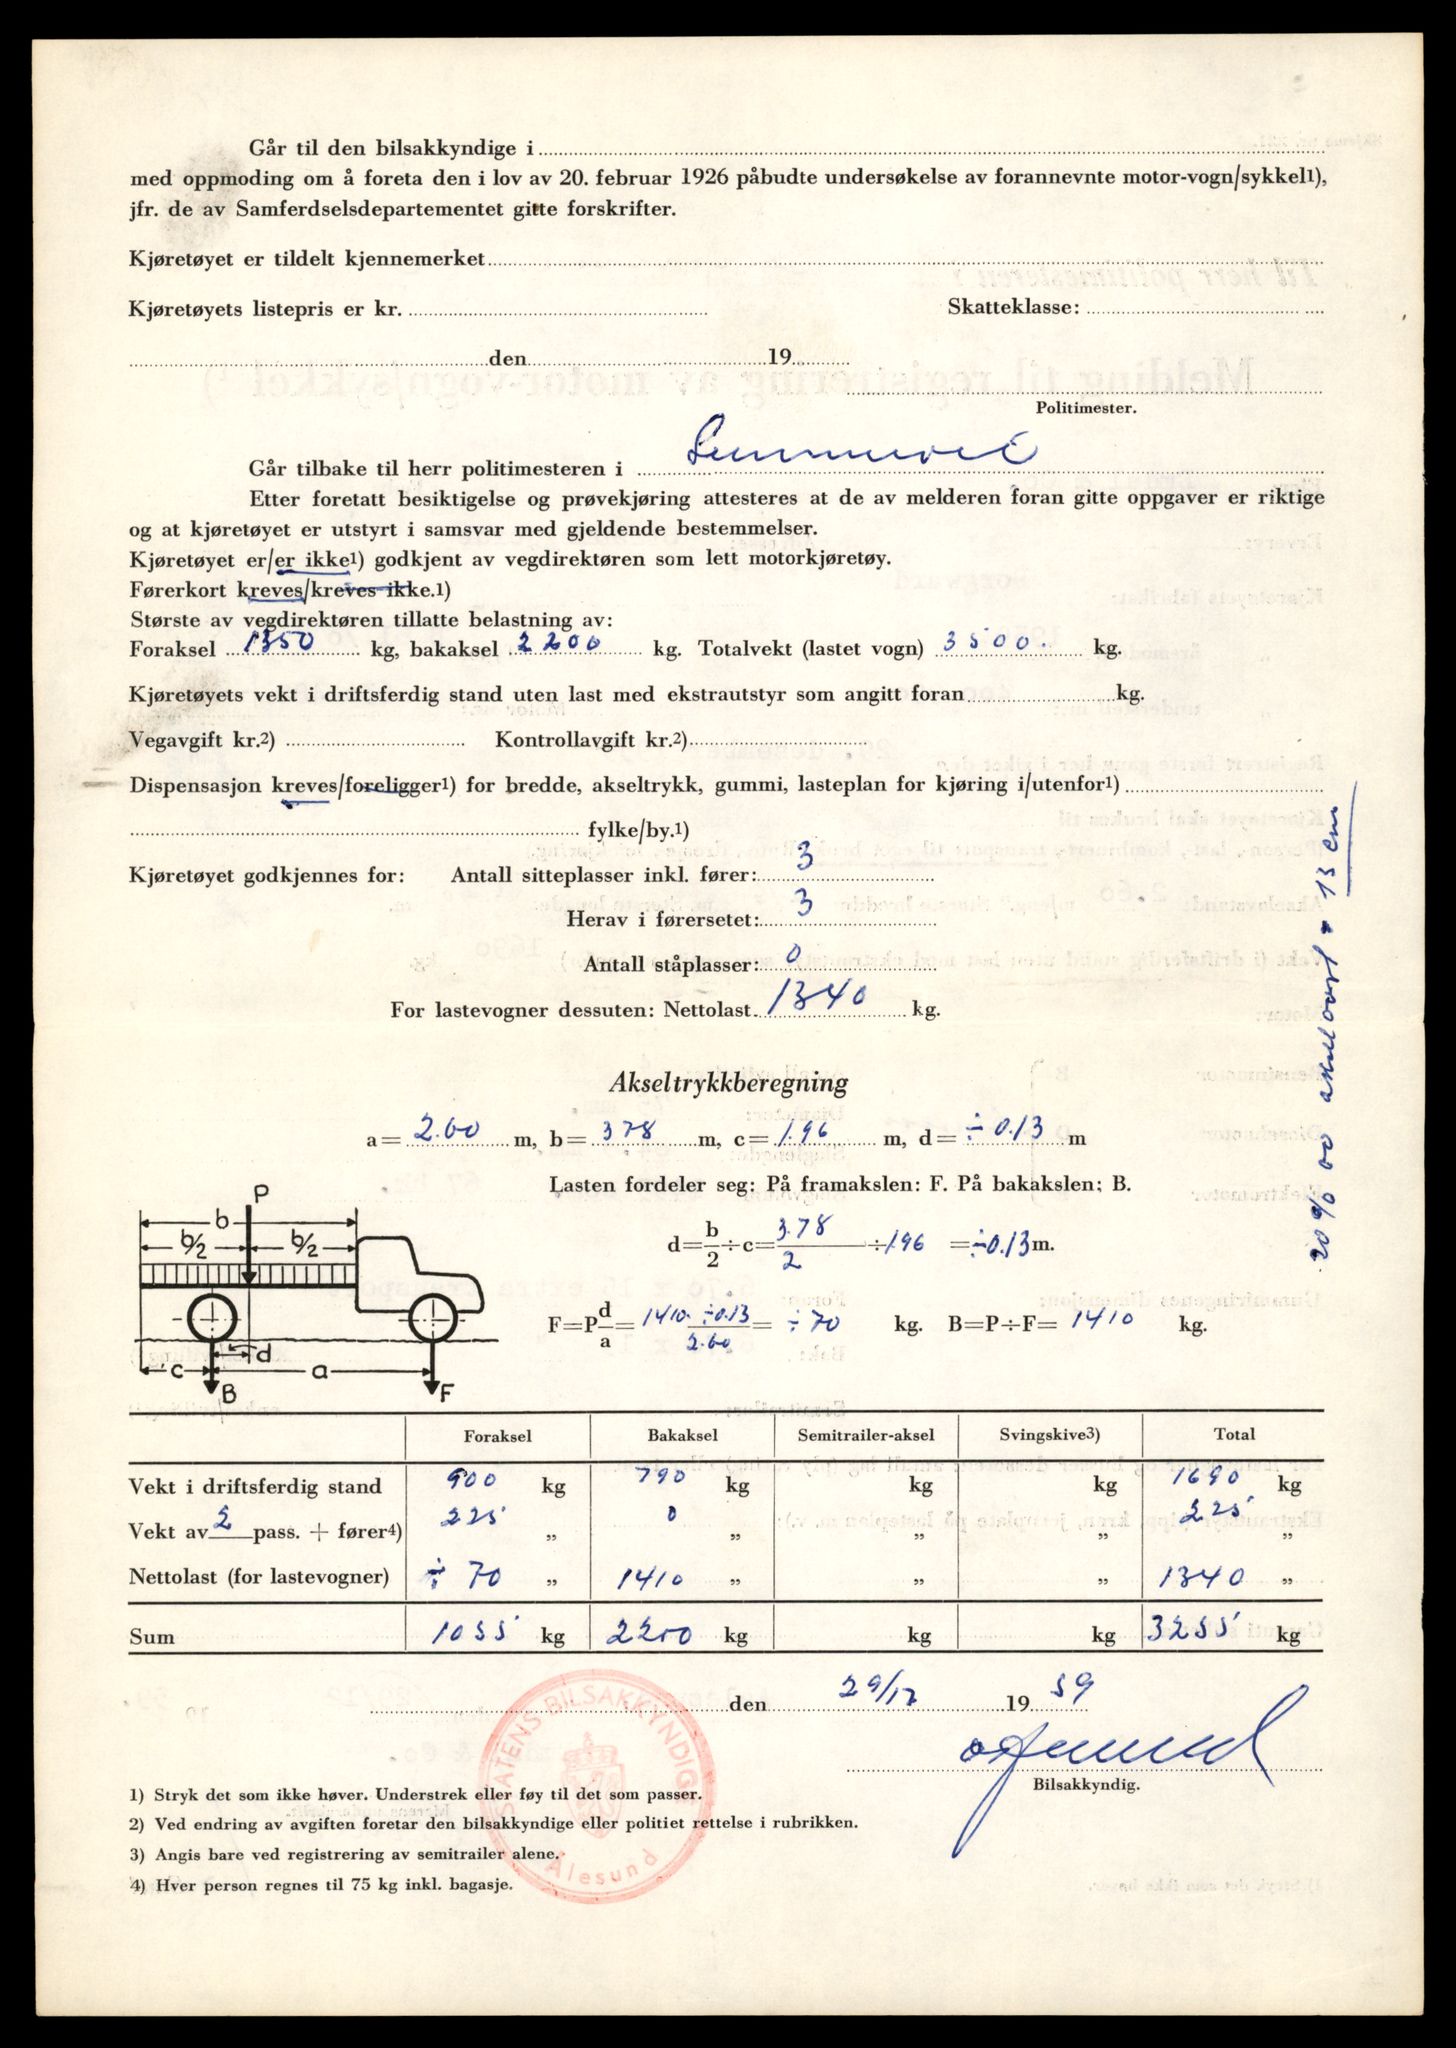 Går til den bilsakkyndige i
med oppmoding om å foreta den i lov av 20. februar 1926 påbudte undersøkelse av forannevnte motor-vogn/sykkel1),
jfr. de av Samferdselsdepartementet gitte forskrifter.
Kjøretøyet er tildelt kjennemerket
Kjøretøyets listepris er kr. Skatteklasse:
den 19
Politimester.
Går tilbake til herr politimesteren i
Etter foretatt besiktigelse og prøvekjøring attesteres at de av melderen foran gitte oppgaver er riktige
og at kjøretøyet er utstyrt i samsvar med gjeldende bestemmelser.
Kjøretøyet er/er ikke1) godkjent av vegdirektøren som lett motorkjøretøy.
Førerkort kreves/kreves ikke.1)
Største av vegdirektøren tillatte belastning av:
Foraksel 1350 kg, bakaksel 2200 kg. Totalvekt (lastet vogn) 3500. kg.
Kjøretøyets vekt i driftsferdig stand uten last med ekstrautstyr som angitt foran kg.
Vegavgift kr.2) Kontrollavgift kr.2)
Dispensasjon kreves/foreligger1) for bredde, akseltrykk, gummi, lasteplan for kjøring i/utenfor1)
fylke/by.1)
Kjøretøyet godkjennes for: Antall sitteplasser inkl. fører: 3
Herav i førersetet: 3
Antall ståplasser: 0
For lastevogner dessuten: Nettolast 1340 kg.
20% 13 cm
Akseltrykkberegning
a= 2.60 m, b= 378 m, c= 1.96 m, d= ÷0.13 m
Lasten fordeler seg: På framakslen: F. På bakakslen; B.
d= b/2 ÷c= 3.78/2 ÷ 1.96 = ÷0.13 m.
F=P d/a = 1410 ÷0.13/2.60 = ÷70 kg. B=P÷F= 1410 kg.
P
b
b/2 b/2
d
c a
B F
Foraksel Bakaksel Semitrailer-aksel Svingskive3) Total
Vekt i driftsferdig stand 900 kg 790 kg kg kg 1690 kg
Vekt av 2 pass. + fører4) 225 „ 0 „ „ „ 225 „
Nettolast (for lastevogner) ÷ 70 „ 1410 „ „ „ 1340 „
Sum 1055 kg 2200 kg kg kg 3255 kg
den 29/12 19 59
Bilsakkyndig.
STATENS BILSAKKYNDIGE
Ålesund
1) Stryk det som ikke høver. Understrek eller føy til det som passer.
2) Ved endring av avgiften foretar den bilsakkyndige eller politiet rettelse i rubrikken.
3) Angis bare ved registrering av semitrailer alene.
4) Hver person regnes til 75 kg inkl. bagasje.